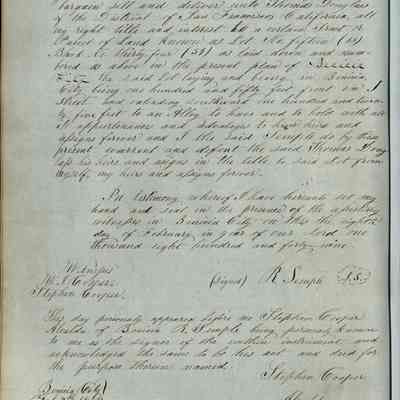 bargain sell and deliver unto Thomas Douglas
of the District of San Francisco California, all
my right title and interest to a certain tract or
Parcel of Land known as Lot No fifteen (15)
Block No thirty four (34) as laid down and num-
bered as above in the present plan of
City the said Lot laying and being in Benicia
City being one hundred and fifty feet front on I
Street and extending southward one hundred and twen-
ty five feet to an Alley to have and to hold with all
it appertenances and advantages to heirs and
assigns forever and I the said Semple do by these
present warrant and defend the said Thomas Doug-
lass his heirs and assigns in the title to said Lot from
myself, my heirs and assigns forever.
In testimony whereof I have hereunto set my
hand and seal in the presence of the
witnesses in Benicia City on this the eighth
day of February in year of our lord one
thousand eight hundred and forty nine.
Witness
W. I. Cooper (signed) R. Semple L.S.
Stephen Cooper
This day personally appeared before me Stephen Cooper
Alcalde of Benicia R. Semple being personally known
to me as the signer of the within instrument and
acknowledged the same to be his act and deed for
the purpose therein named.
Stephen Cooper
Benicia City